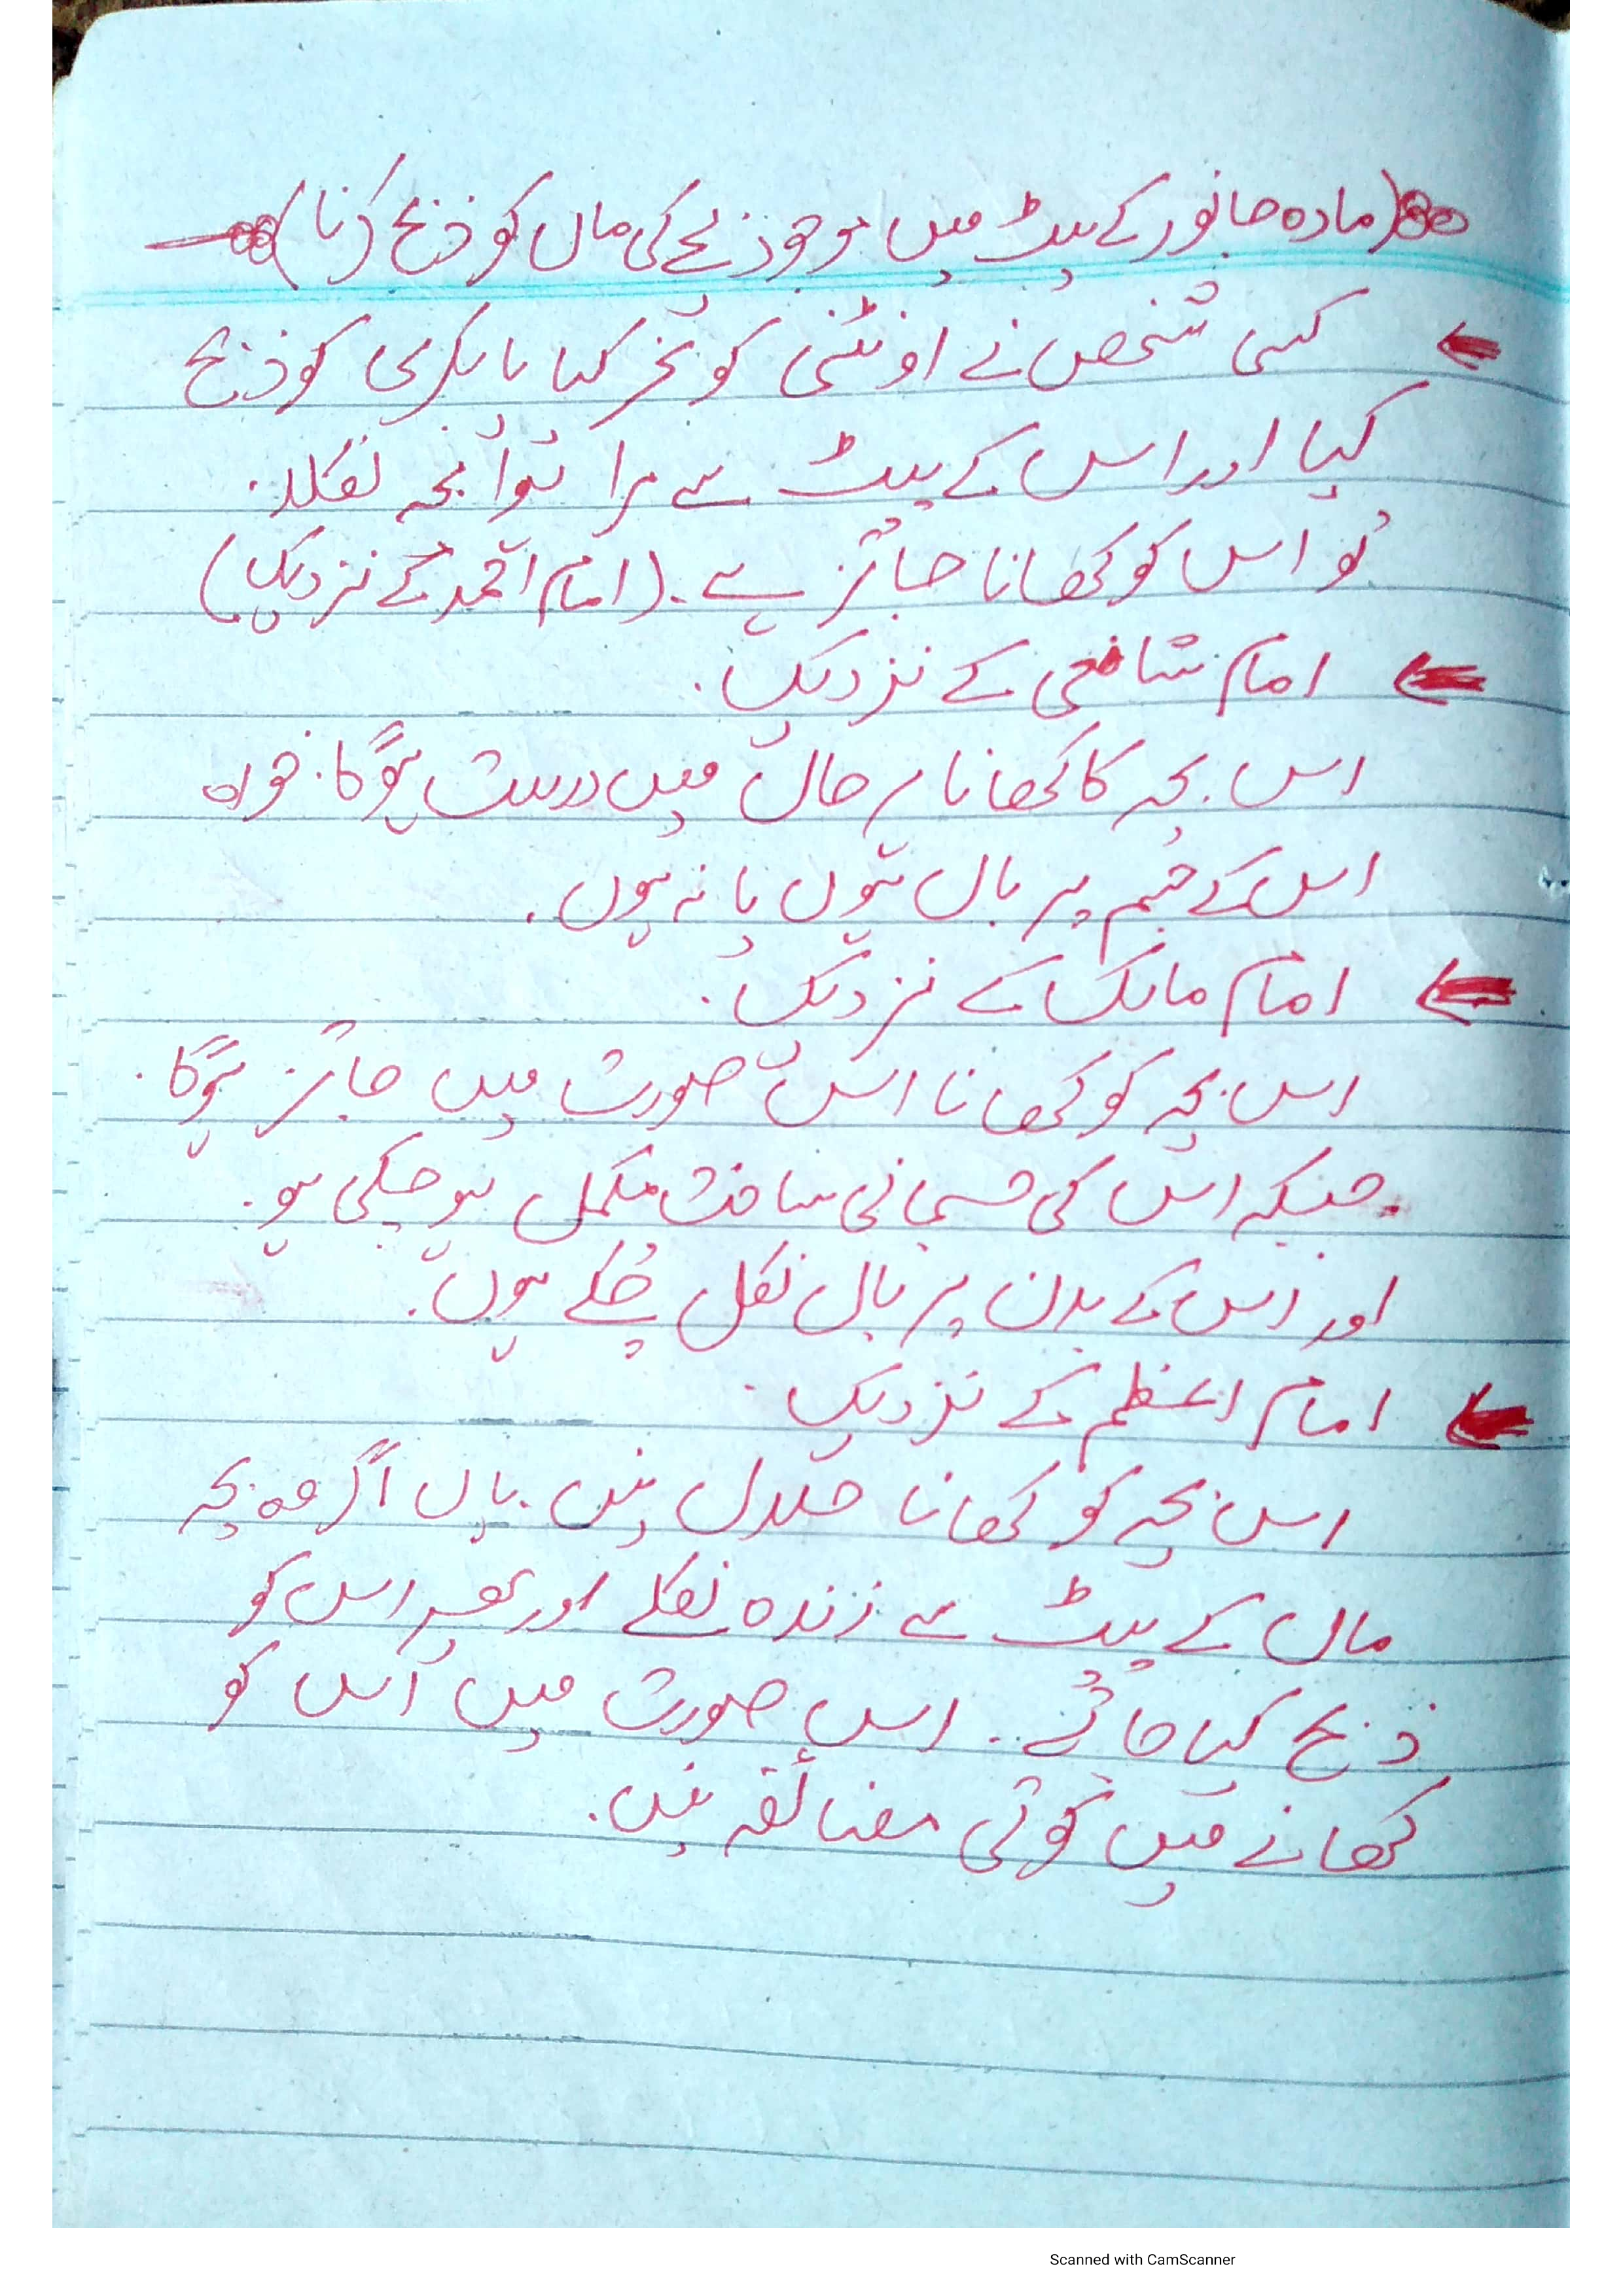 (مادہ جانور کے پیٹ میں موجود بچے کی ماں کو ذبح کرنا)
کسی شخص نے اونٹنی کو نحر کیا یا بکری کو ذبح
کیا اور اس کے پیٹ سے مرا ہوا بچہ نکلا۔
تو اس کو کھانا جائز ہے۔ (امام احمد کے نزدیک)
امام شافعی کے نزدیک۔
اس بچہ کا کھانا ہر حال میں درست ہوگا۔ خواہ
اس کے جسم پر بال ہوں یا نہ ہوں۔
امام مالک کے نزدیک۔
اس بچہ کو کھانا اس صورت میں جائز ہوگا۔
جبکہ اس کی جسمانی ساخت مکمل ہو چکی ہو۔
اور اس کے بدن پر بال نکل چکے ہوں۔
امام اعظم کے نزدیک۔
اس بچہ کو کھانا حلال نہیں۔ ہاں اگر وہ بچہ
ماں کے پیٹ سے زندہ نکلے اور پھر اس کو
ذبح کیا جائے۔۔ اس صورت میں اس کو
کھانے میں کوئی مضائقہ نہیں۔
Scanned with CamScanner